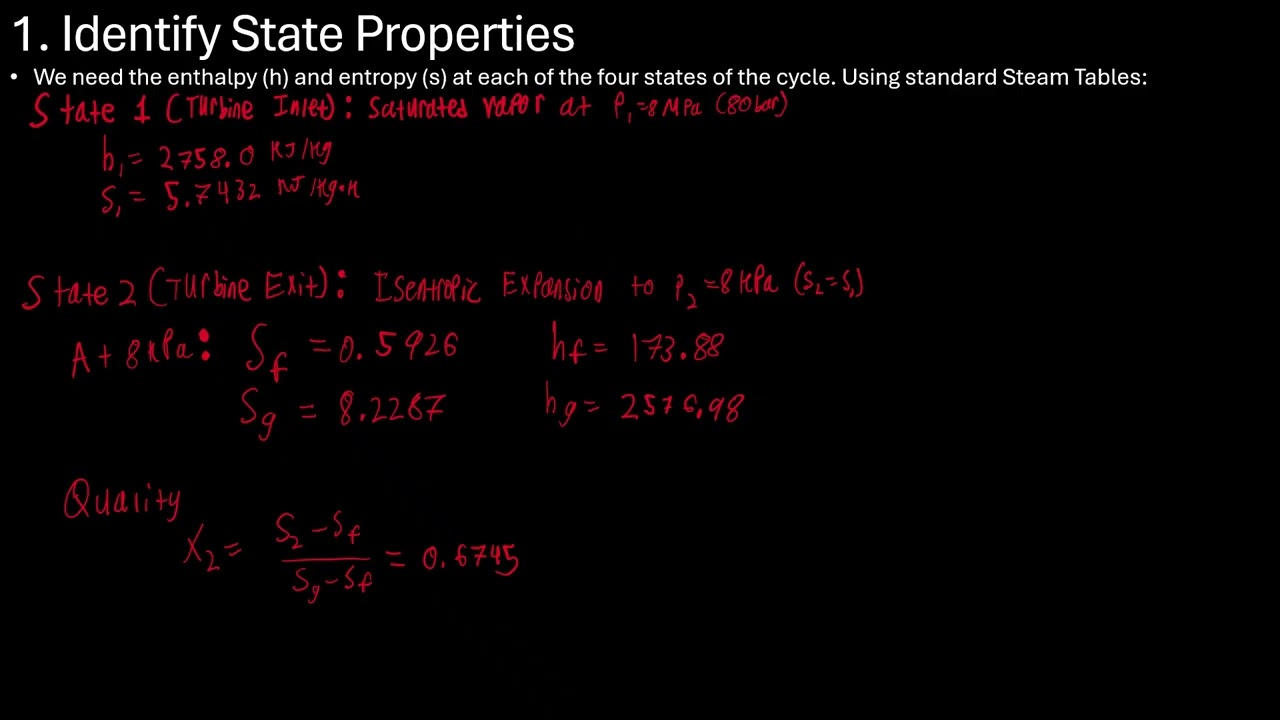 1. Identify State Properties
• We need the enthalpy (h) and entropy (s) at each of the four states of the cycle. Using standard Steam Tables:
State 1 (Turbine Inlet): Saturates vapor at P₁=8 MPa (80 bar)
h₁= 2758.0 KJ/Kg
S₁= 5.7432 KJ/Kg·K
State 2 (Turbine Exit): Isentropic Expansion to P₂=8 KPa (S₂=S₁)
At 8 KPa: Sf = 0.5926 hf = 173.88
Sg = 8.2287 hg = 2576.98
Quality
X₂ = S₂-Sf / Sg-Sf = 0.6745